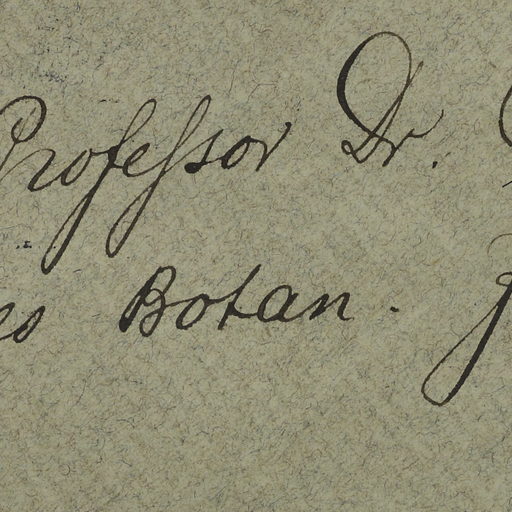 Professor Dr.
es Botan.